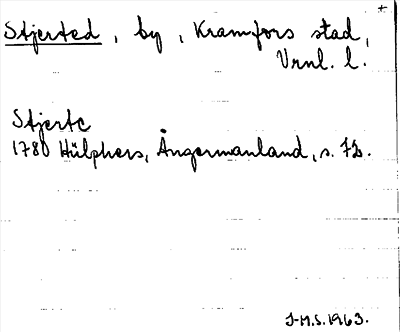 +
Stjerted, by, Kramfors stad,
Vrnl. l.
Stjertc
1780 Hülphers, Ångermanland, s. 72.
J-M.S. 1963.